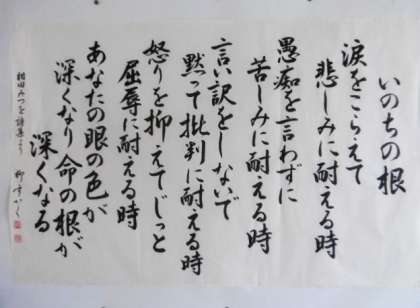 いのちの根
涙をこらえて
悲しみに耐える時
愚痴を言わずに
苦しみに耐える時
言い訳をしないで
黙って批判に耐える時
怒りを抑えてじっと
屈辱に耐える時
あなたの眼の色が
深くなり命の根が
深くなる
相田みつを詩集より